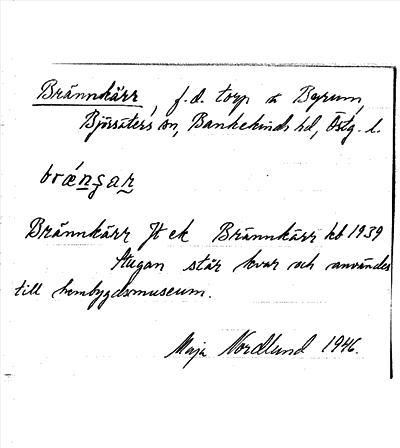 Brännkärr, f.d. torp u Bgrum,
Björsäters sn, Bankekinds hd, Östg. l.
Brännkärr Jt ek Brännkärr kb 1939
Stugan står kvar och användes
till hembygdsmuseum.
Maja Nordlund 1946.